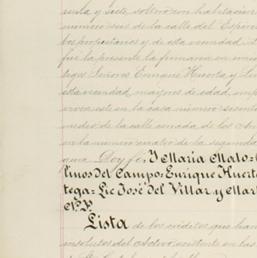 senta y siete, soltero con habitacion
número seis de la calle del Espíri
tos propietarios y de esta vecindad,
fué la presente la firmaron en unión
tegas Señores Enrique Huerta y Lui
esta vecindad, mayores de edad, im
vive este en la casa número sesenta
medio de la calle cerrada de los
en la número cuatro de la segunda
que Doy fé. J. Maria Malo=
linos del Campo= Enrique Huert
tega= Lic José del Villar y Mart
N.P.
Lista de los créditos que han
insolutos del Activo existente en las